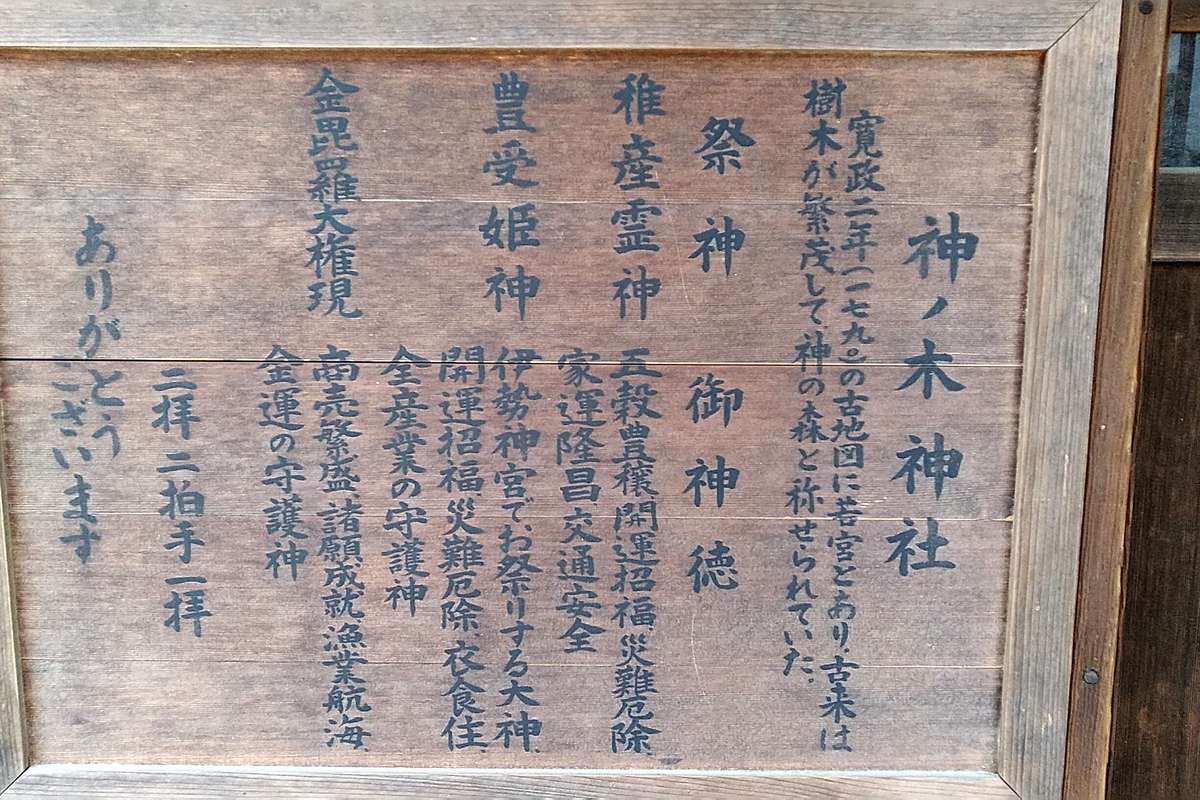 神ノ木神社
寛政二年(一七九〇)の古地図に若宮とあり、古来は
樹木が繁茂して、神の森と称せられていた。
祭神 御神徳
稚産霊神 五穀豊穣、開運招福、災難厄除、
家運隆昌、交通安全
豊受姫神 伊勢神宮で、お祭りする大神、
開運招福、災難厄除、衣食住、
全産業の守護神
金毘羅大権現 商売繁盛、諸願成就、漁業航海、
金運の守護神
二拝二拍手一拝
ありがとうございます